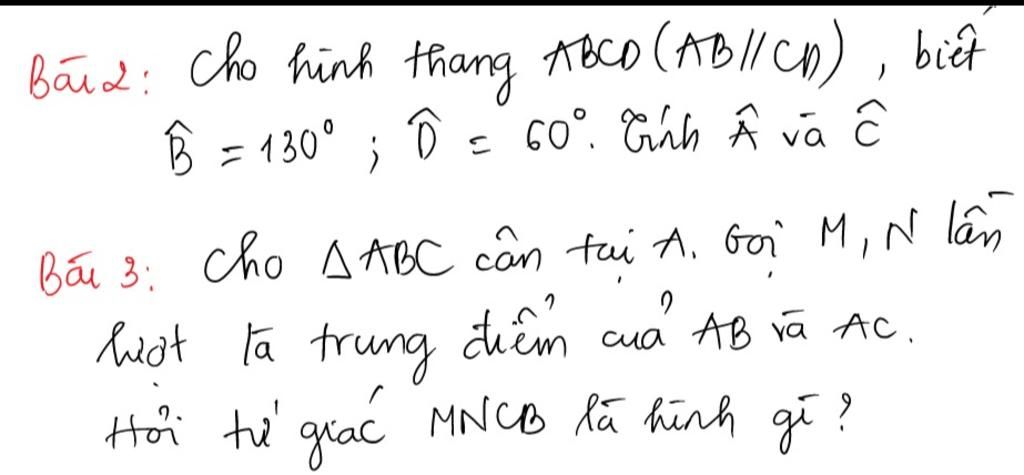 Bài 2: Cho hình thang ABCD (AB // CD), biết
B̂ = 130° ; D̂ = 60°. Tính Â và Ĉ
Bài 3: Cho ΔABC cân tại A. Gọi M, N lần
lượt là trung điểm của AB và AC.
Hỏi tứ giác MNCB là hình gì ?